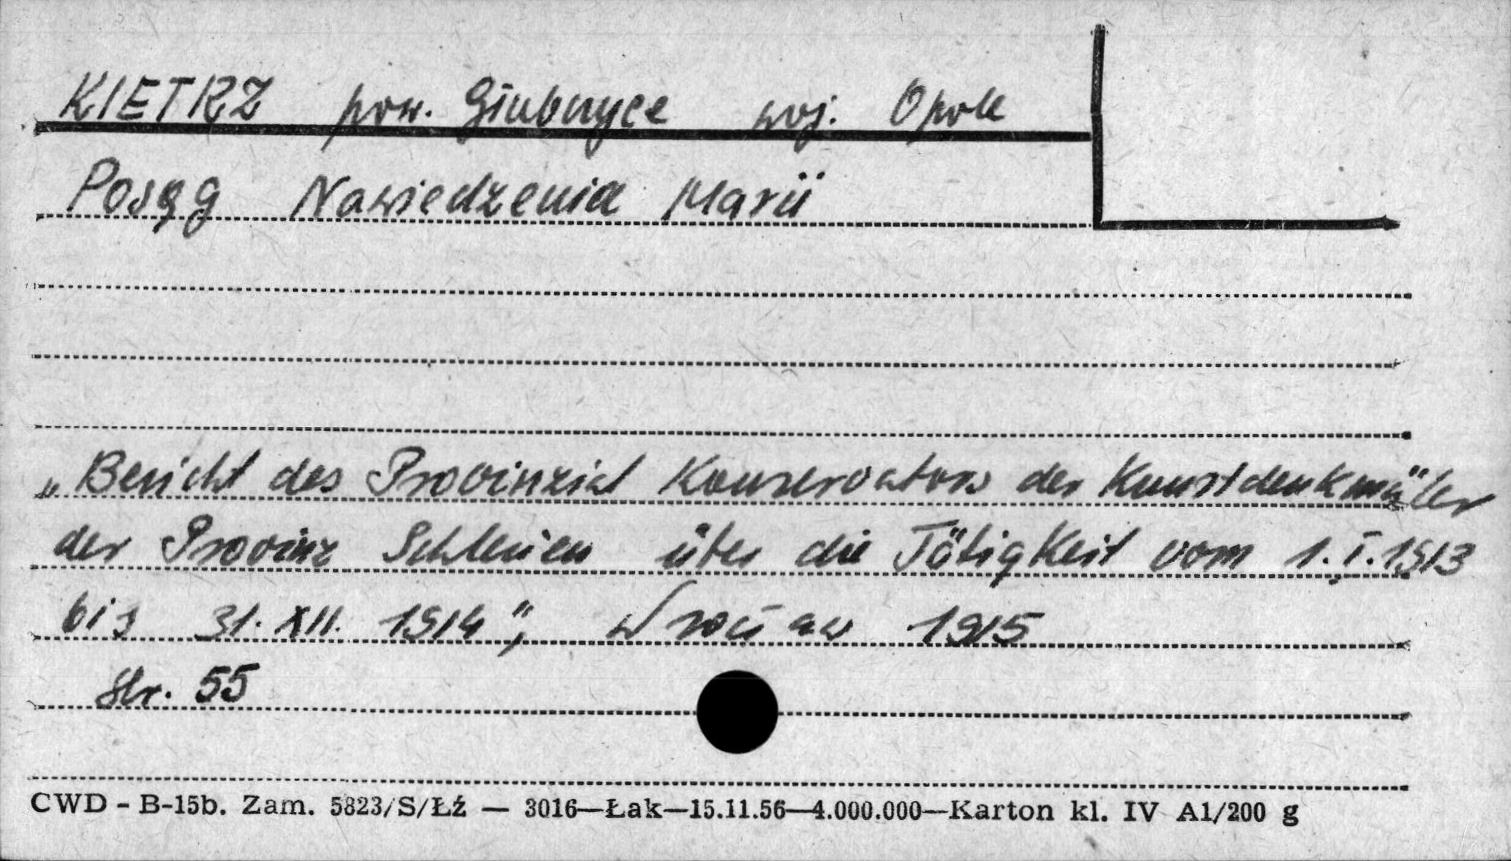 KIETRZ pow. Głubczyce woj. Opole
Posąg Nawiedzenia Marii
„Bericht des Provinzial Konservators der Kunstdenkmäler
der Provinz Schlesien über die Tätigkeit vom 1.I.1913
bis 31.XII. 1914", Wrocław 1915
Str. 55
CWD - B-15b. Zam. 5823/S/Łź — 3016—Łak—15.11.56—4.000.000—Karton kl. IV A1/200 g